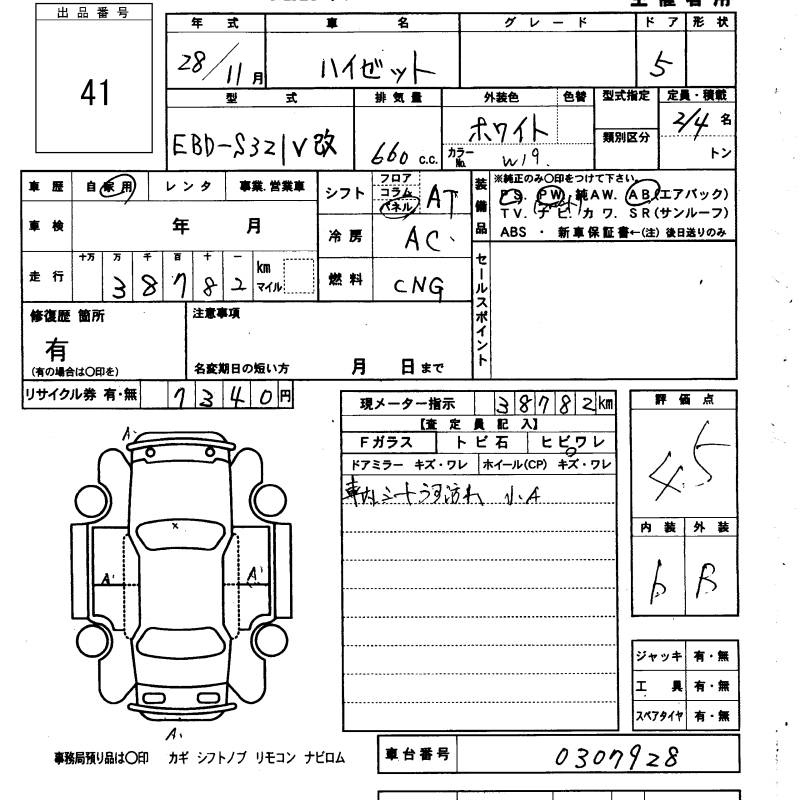 出品番号
41
年式 車名 グレード ドア 形状
28/11月 ハイゼット 5
型式 排気量 外装色 色替 型式指定 定員・積載
EBD-S321V改 660 c.c. ホワイト 2/4 名
カラーNo. W19. 類別区分 トン
車歴 自家用 レンタ 事業.営業車
シフト フロア コラム パネル AT
装備品 ※純正のみ〇印をつけて下さい。
PS. PW 純AW. AB(エアバック)
TV. ナビ. カワ. SR(サンルーフ)
ABS ・ 新車保証書←(注) 後日送りのみ
車検 年 月
冷房 AC.
走行 十万 万 千 百 十 一
38782 km マイル
燃料 CNG
セールスポイント
修復歴 箇所
有
(有の場合は〇印を)
注意事項
名変期日の短い方 月 日まで
リサイクル券 有・無 7340円
現メーター指示 38782km
【査定員記入】
Fガラス トビ石 ヒビワレ
ドアミラー キズ・ワレ ホイール(CP) キズ・ワレ
車内シートうす汚れ 小A
評価点
4.5
内装 外装
b B
A'
A' A'
A'
ジャッキ 有・無
工具 有・無
スペアタイヤ 有・無
事務局預り品は〇印 カギ シフトノブ リモコン ナビロム
車台番号 0307928